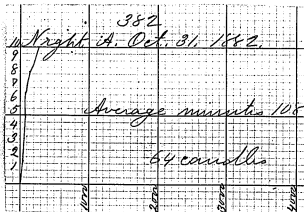 382
10 Nrght. A. Oct. 31. 1882.
9
8
7
6
5 Average minutes 108
4
3
2 64 candles
1
1000 2000 3000 4000